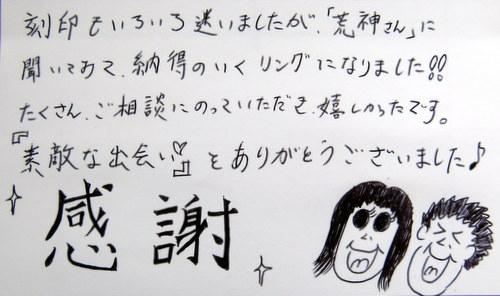 刻印もいろいろ迷いましたが、「荒神さん」に
聞いてみて、納得のいくリングになりました!!
たくさん、ご相談にのっていただき、嬉しかったです。
『素敵な出会い♡』をありがとうございました♪
感謝